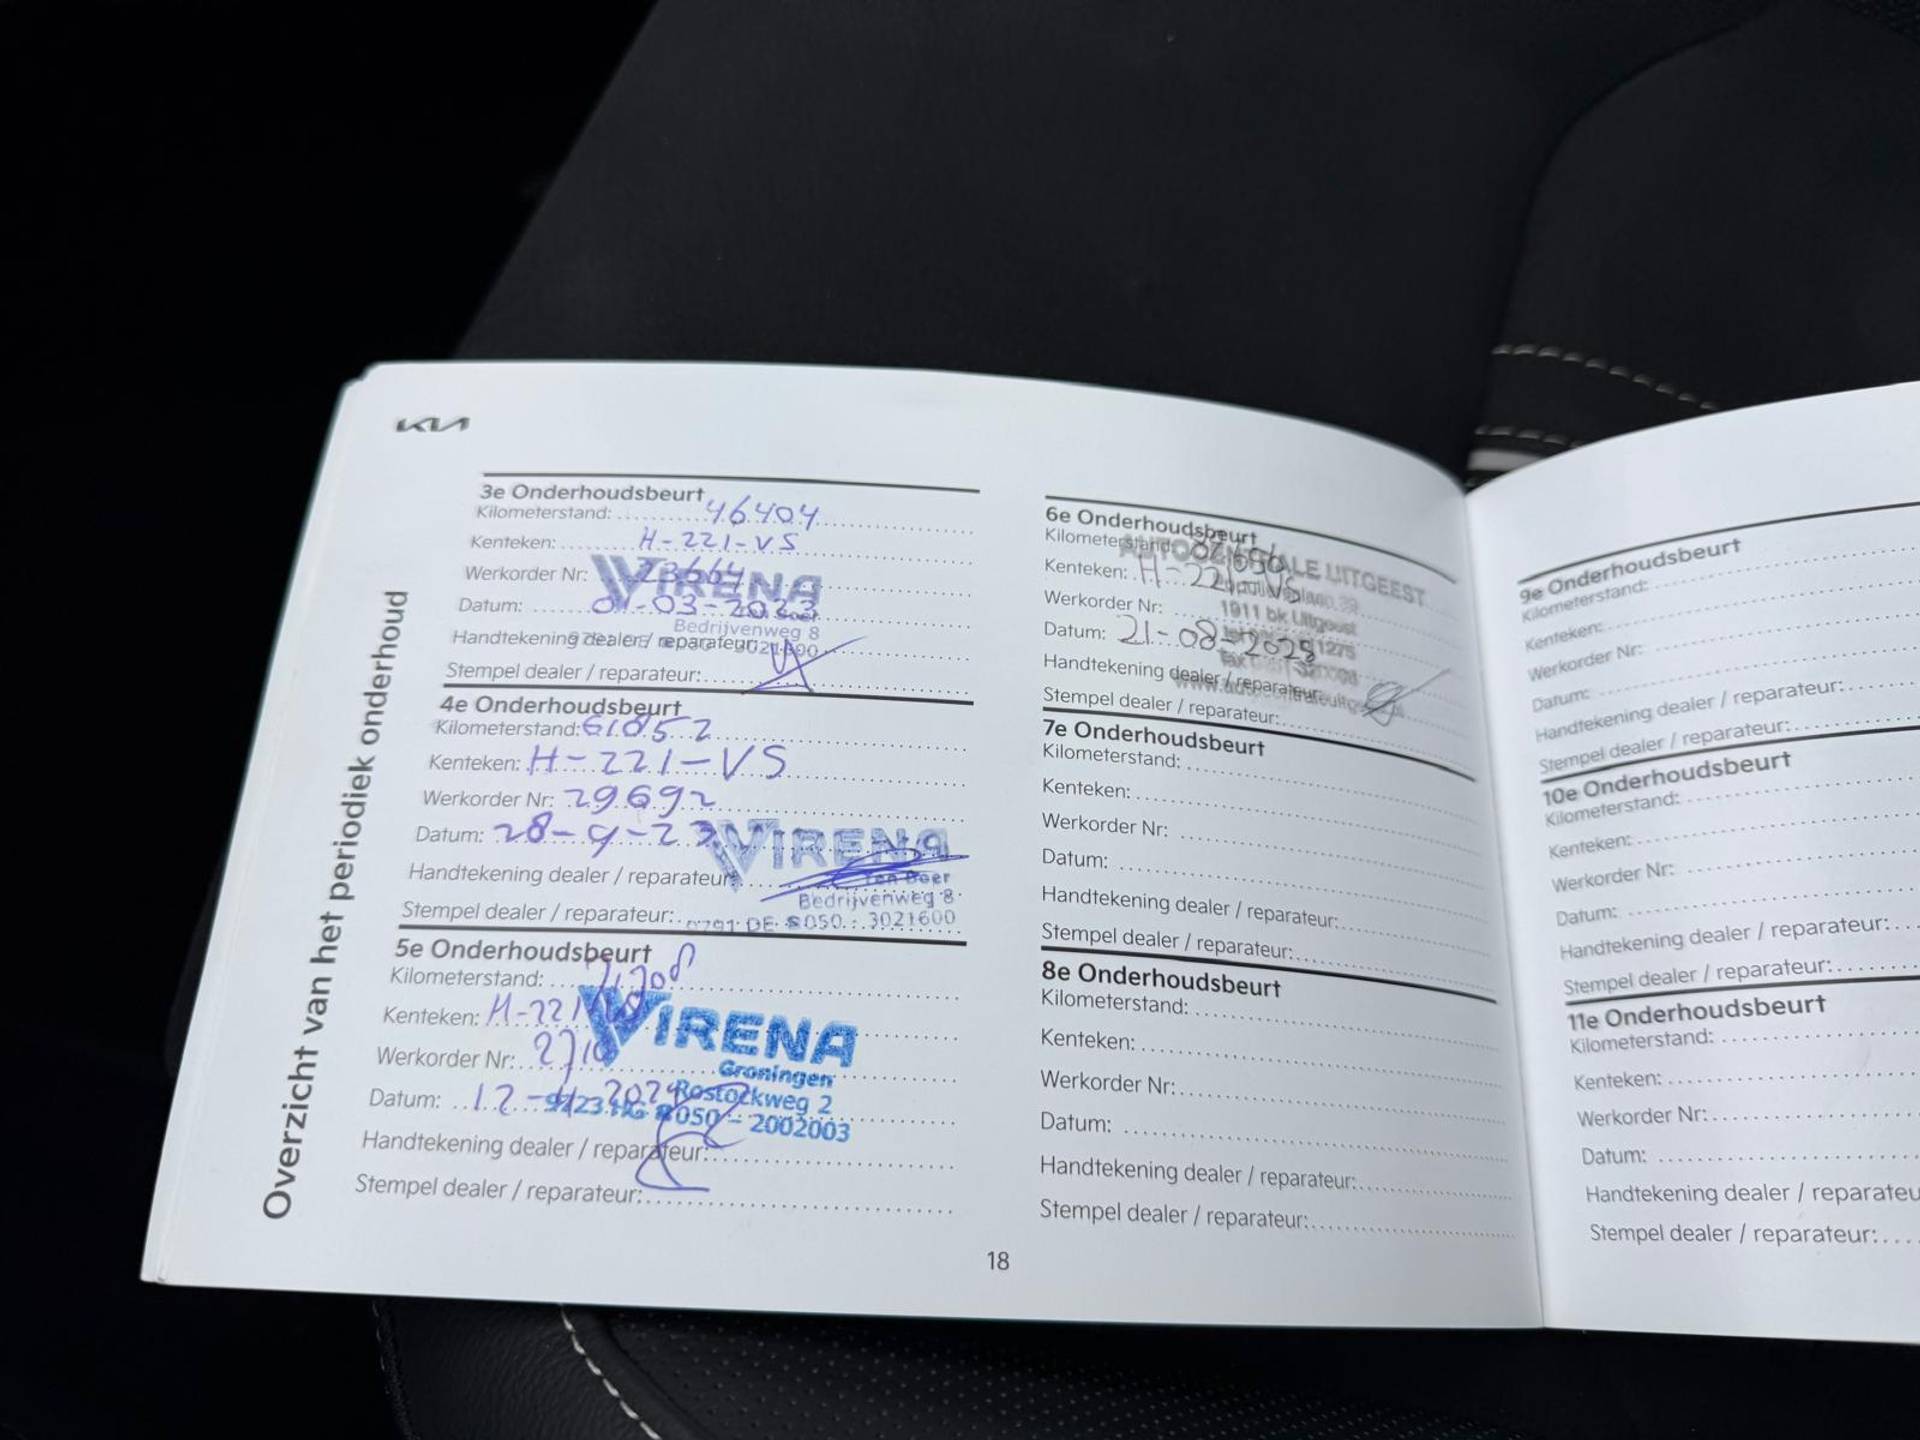 KIA
Overzicht van het periodiek onderhoud
3e Onderhoudsbeurt
Kilometerstand: 46404
Kenteken: H-221-VS
Werkorder Nr: 23664
VIRENA
Datum: 01-03-2023
Bedrijvenweg 8
Handtekening dealer / reparateur:
Stempel dealer / reparateur:
4e Onderhoudsbeurt
Kilometerstand: 61852
Kenteken: H-221-VS
Werkorder Nr: 29692
Datum: 28-9-23
VIRENA
Handtekening dealer / reparateur:
Ten Boer
Bedrijvenweg 8
Stempel dealer / reparateur:
9791 DE 050 - 3021600
5e Onderhoudsbeurt
Kilometerstand:
Kenteken: H-221
VIRENA
Werkorder Nr:
Groningen
Rostockweg 2
Datum: 12- -2024
9723 HG 050 - 2002003
Handtekening dealer / reparateur:
Stempel dealer / reparateur:
6e Onderhoudsbeurt
Kilometerstand:
UITGEEST
Kenteken: H-221-VS
1911 bk Uitgeest
Werkorder Nr:
Datum: 21-08-2025
Handtekening dealer / reparateur:
Stempel dealer / reparateur:
7e Onderhoudsbeurt
Kilometerstand:
Kenteken:
Werkorder Nr:
Datum:
Handtekening dealer / reparateur:
Stempel dealer / reparateur:
8e Onderhoudsbeurt
Kilometerstand:
Kenteken:
Werkorder Nr:
Datum:
Handtekening dealer / reparateur:
Stempel dealer / reparateur:
18
9e Onderhoudsbeurt
Kilometerstand:
Kenteken:
Werkorder Nr:
Datum:
Handtekening dealer / reparateur:
Stempel dealer / reparateur:
10e Onderhoudsbeurt
Kilometerstand:
Kenteken:
Werkorder Nr:
Datum:
Handtekening dealer / reparateur:
Stempel dealer / reparateur:
11e Onderhoudsbeurt
Kilometerstand:
Kenteken:
Werkorder Nr:
Datum:
Handtekening dealer / reparateu
Stempel dealer / reparateur: